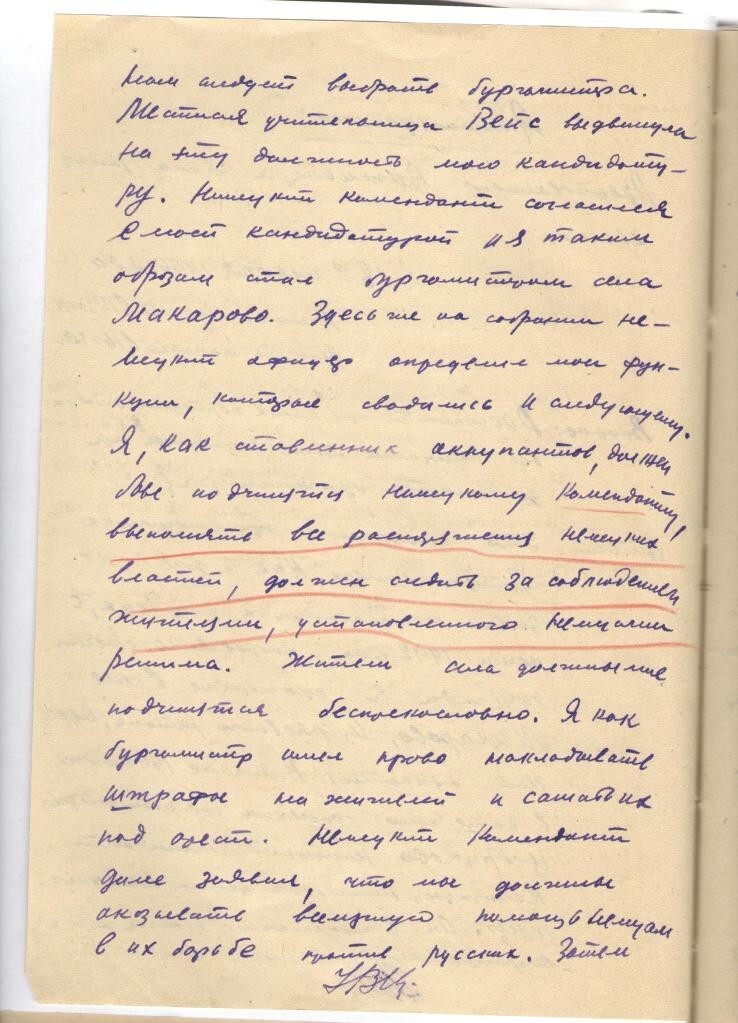 нам следует выбрать бургомистра.
Местная учительница Вейс выдвинула
на эту должность мою кандидату-
ру. Немецкий комендант согласился
с моей кандидатурой и я таким
образом стал бургомистром села
Макарово. Здесь же на собрании не-
мецкий офицер определил мои фун-
кции, которые сводились к следующему.
Я, как ставленник аккупантов, должен
был подчинятся немецкому коменданту,
выполнять все распоряжения немецких
властей, должен следить за соблюдением
жителями, установленного немцами
режима. Жители села должны мне
подчинятся беспрекословно. Я как
бургомистр имел право накладывать
штрафы на жителей и сажать их
под арест. Немецкий комендант
дале заявил, что мы должны
оказывать всяческую помощь немцам
в их борьбе против русских. Затем